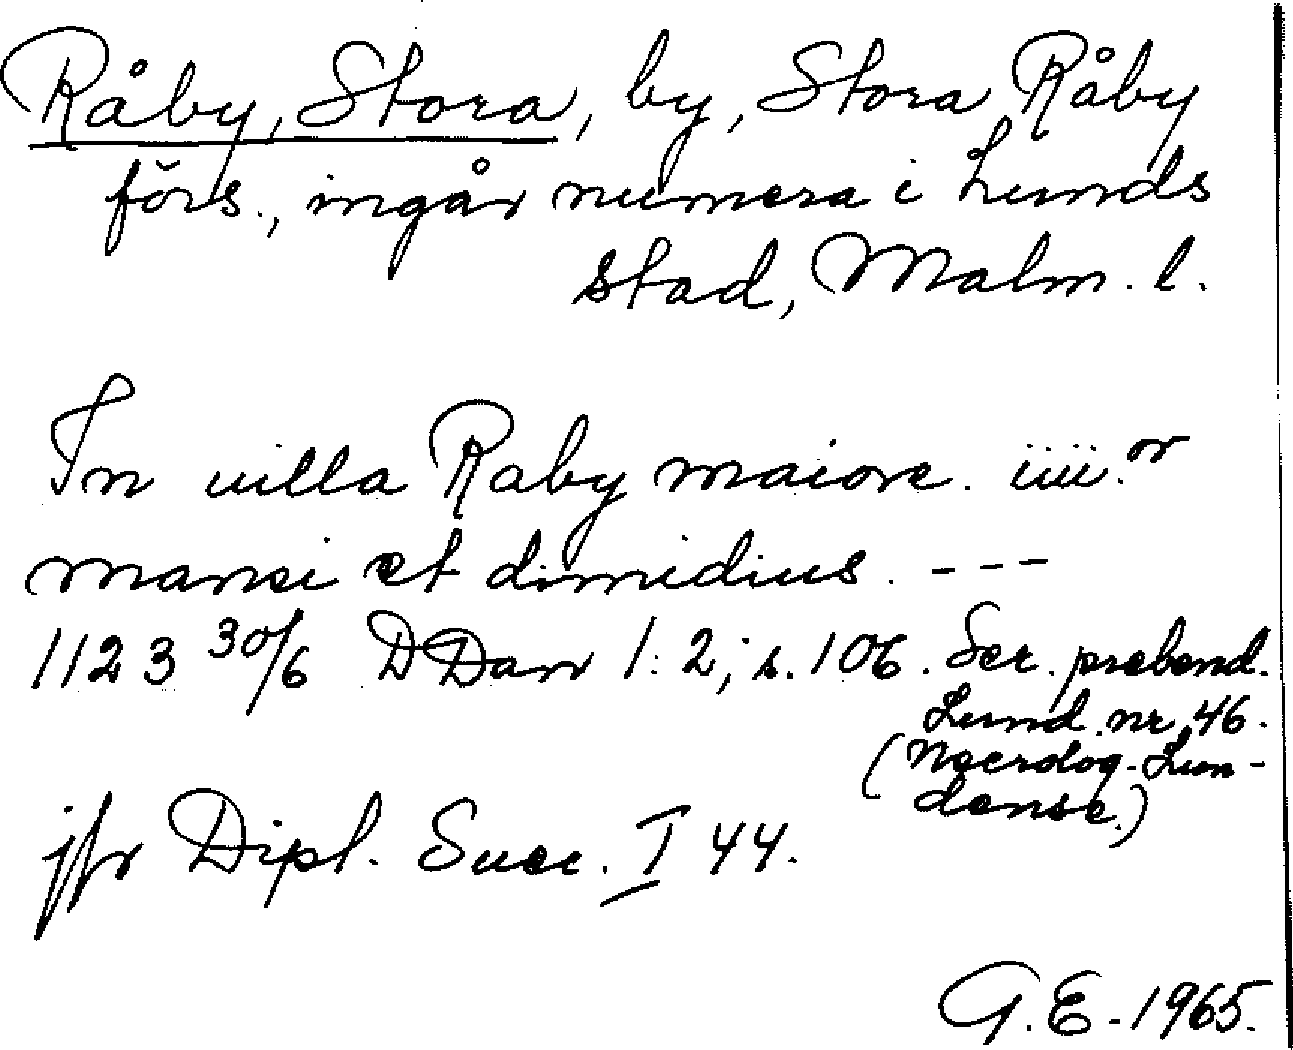 Råby, Stora, by, Stora Råby
förs., ingår numera i Lunds
stad, Malm. l.
In uilla Raby maiore. iiii.or
mansi et dimidius. ---
1123 30/6 DDan 1:2, s. 106. Scr. prebend.
Lund. nr 46.
(Necrolog. Lun-
dense.)
jfr Dipl. Suec. I 44.
G.E. 1965.